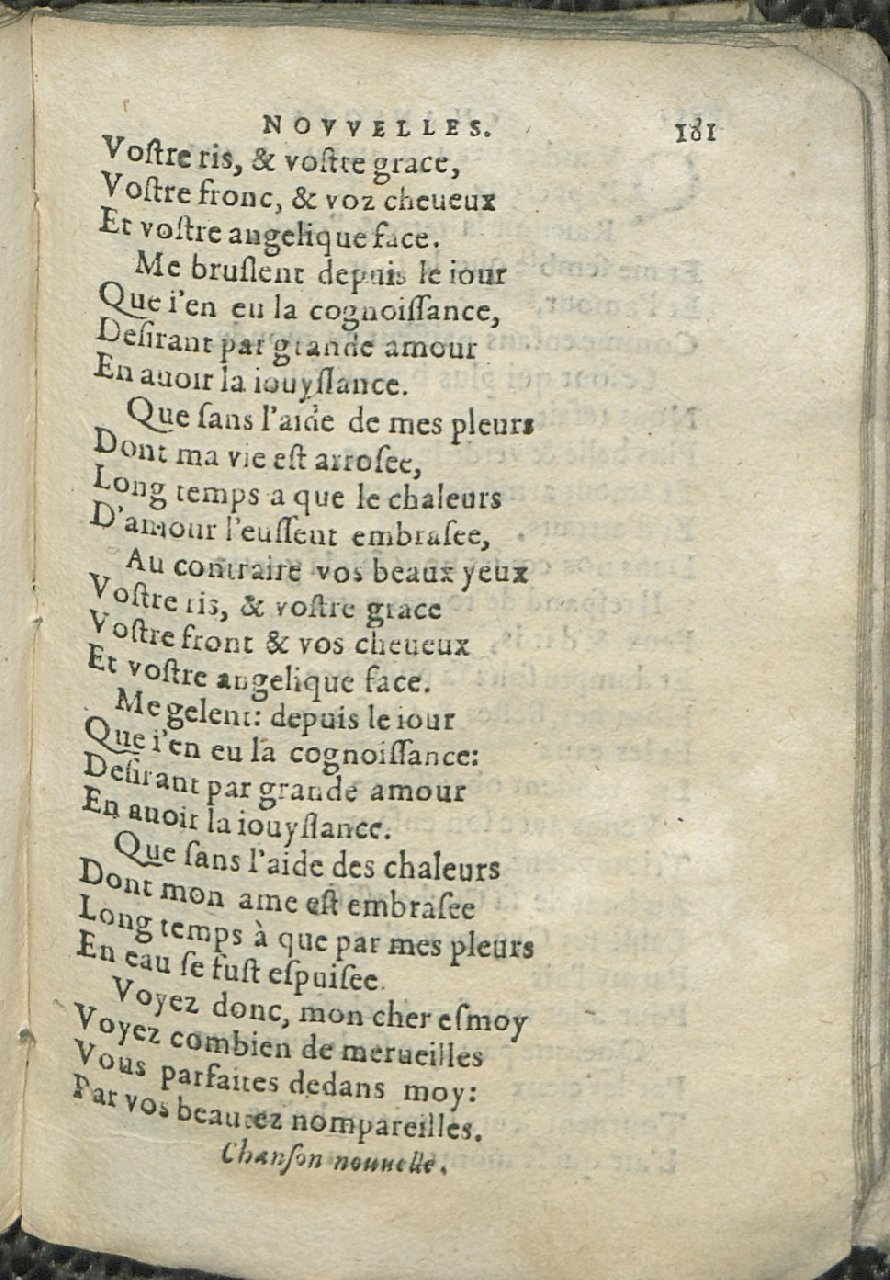 NOVVELLES. 181
Voſtre ris, & voſtre grace,
Voſtre fronc, & voz cheueux
Et voſtre angelique face.
Me bruſlent depuis le iour
Que i'en eu la cognoiſſance,
Deſirant par grande amour
En auoir la iouyſſance.
Que ſans l'aide de mes pleurs
Dont ma vie eſt arroſee,
Long temps a que le chaleurs
D'amour l'euſſent embraſee,
Au contraire vos beaux yeux
Voſtre ris, & voſtre grace
Voſtre front & vos cheueux
Et voſtre angelique face.
Me gelent: depuis le iour
Que i'en eu la cognoiſſance:
Deſirant par grande amour
En auoir la iouyſlance.
Que ſans l'aide des chaleurs
Dont mon ame eſt embraſee
Long temps à que par mes pleurs
En eau ſe fuſt eſpuiſee.
Voyez donc, mon cher eſmoy
Voyez combien de merueilles
Vous parfaites dedans moy:
Par vos beautez nompareilles.
Chanſon nouuelle.